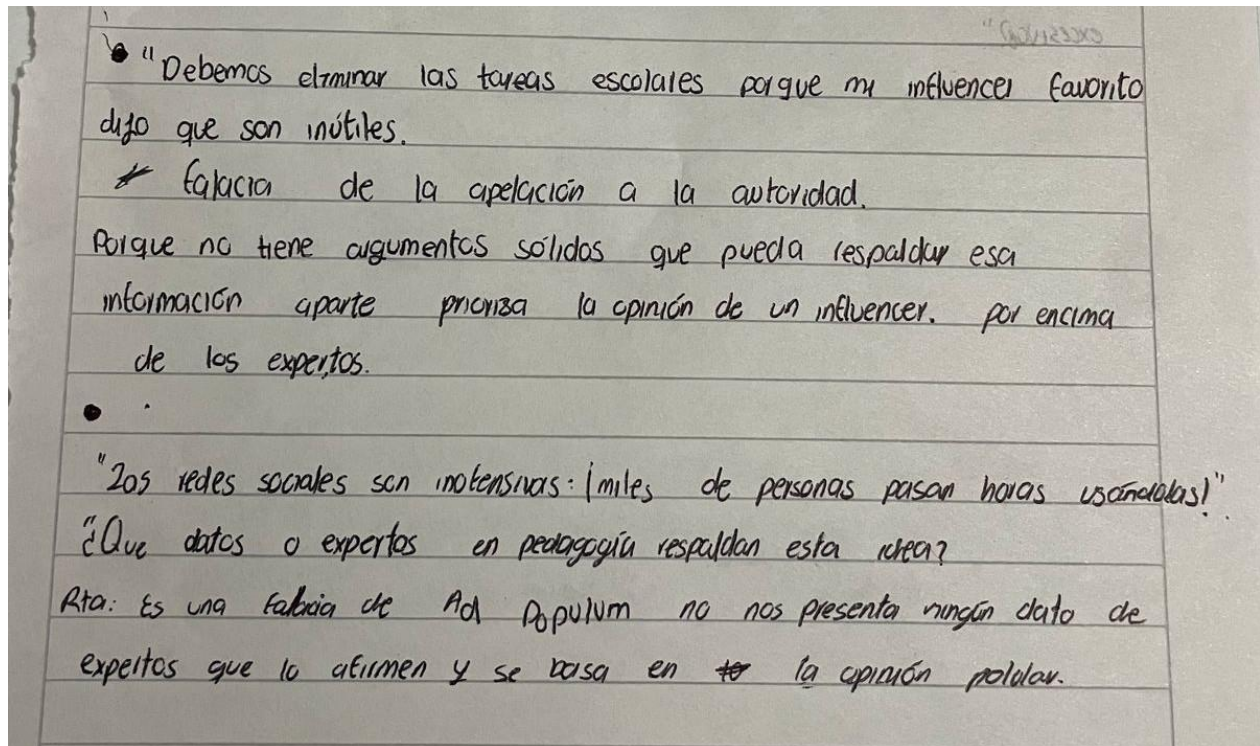 "Debemos eliminar las tareas escolares porque mi influencer favorito
dijo que son inútiles.
* falacia de la apelación a la autoridad.
Porque no tiene argumentos sólidos que pueda respaldar esa
información aparte prioriza la opinión de un influencer. por encima
de los expertos.
"Las redes sociales son inofensivas: ¡miles de personas pasan horas usándolas!"
"¿Que datos o expertos en pedagogía respaldan esta idea?
Rta: Es una falacia de Ad Populum no nos presenta ningún dato de
expertos que lo afirmen y se basa en la opinión polular.